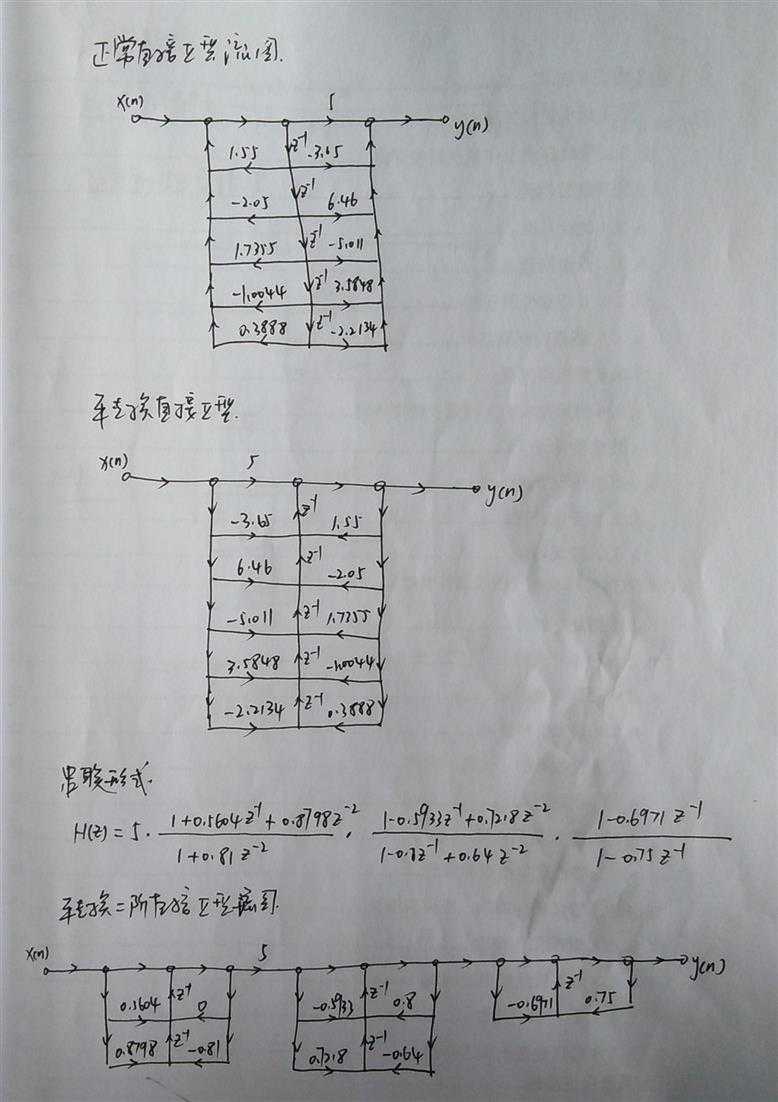 正常直接Ⅱ型流图.
x(n) 5 y(n)
z⁻¹
1.55 -3.65
z⁻¹
-2.05 6.46
z⁻¹
1.7355 -5.011
z⁻¹
-1.0044 3.5848
z⁻¹
0.3888 -2.2134
转换直接Ⅱ型.
x(n) 5 y(n)
z⁻¹
-3.65 1.55
z⁻¹
6.46 -2.05
z⁻¹
-5.011 1.7355
z⁻¹
3.5848 -1.0044
z⁻¹
-2.2134 0.3888
串联形式.
H(z) = 5 · (1+0.5604z⁻¹+0.8798z⁻²)/(1+0.81z⁻²) · (1-0.5933z⁻¹+0.7218z⁻²)/(1-0.8z⁻¹+0.64z⁻²) · (1-0.6971z⁻¹)/(1-0.75z⁻¹)
转换二阶直接Ⅱ型流图.
x(n) 5 y(n)
0.5604 z⁻¹ 0 -0.5933 z⁻¹ 0.8 -0.6971 z⁻¹ 0.75
0.8798 z⁻¹ -0.81 0.7218 z⁻¹ -0.64